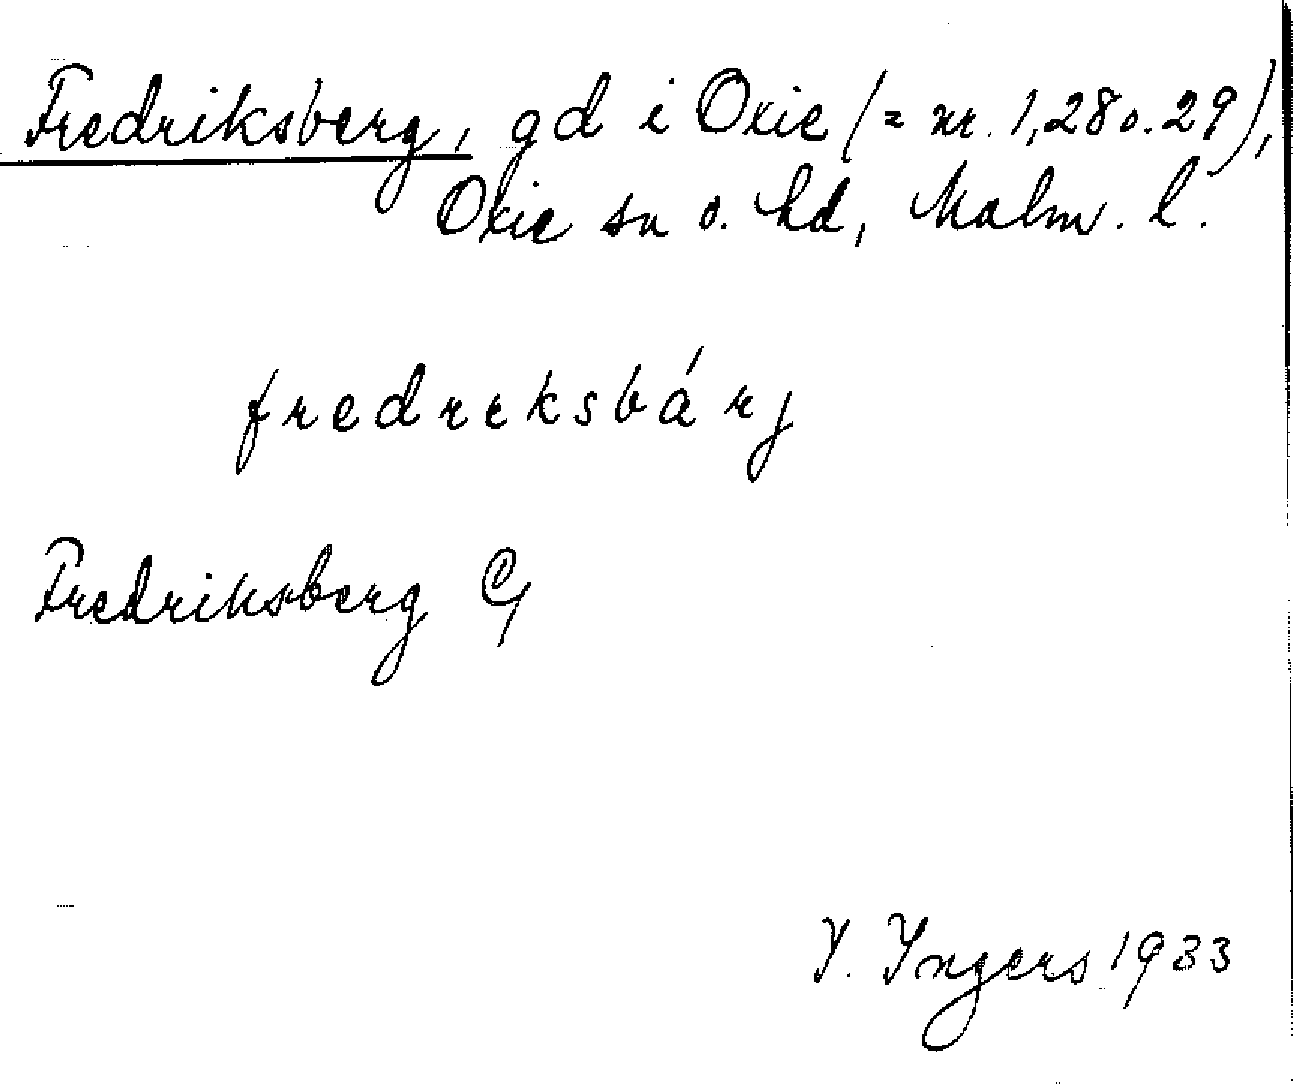 Fredriksberg, gd i Oxie (= nr. 1,28 o. 29),
Oxie sn o. hd, Malm. l.
fredreksbárj
Fredriksberg
Ingers 1933